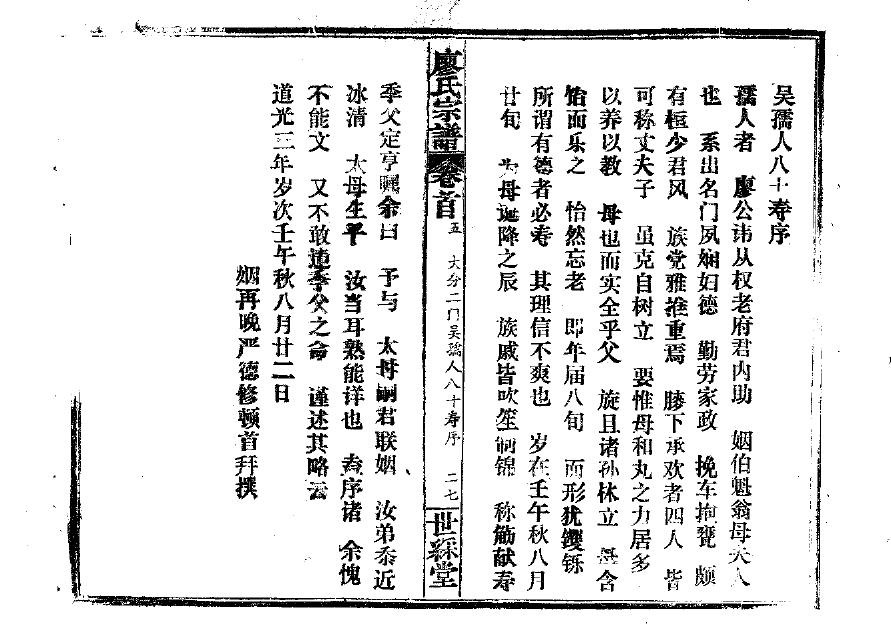 吴孺人八十寿序
孺人者 廖公讳从权老府君内助 姻伯魁翁母大人
也 系出名门夙娴妇德 勤劳家政 挽车抱甕 颇
有桓少君风 族党雅推重焉 膝下承欢者四人 皆
可称丈夫子 虽克自树立 要惟母和丸之力居多
以养以教 母也而实全乎父 旋且诸孙林立 每含
饴而乐之 怡然忘老 即年届八旬 而形犹矍铄
所谓有德者必寿 其理信不爽也 岁在壬午秋八月
廿旬 为母诞降之辰 族戚皆吹笙制锦 称觞献寿
廖氏宗谱 卷首 五 大分二门吴孺人八十寿序 二七 世綵堂
季父定亨嘱余曰 予与 太母嗣君联姻 汝弟忝近
冰清 太母生平 汝当耳熟能详也 序诸 余愧
不能文 又不敢违季父之命 谨述其略云
道光三年岁次壬午秋八月廿二日
姻再晚严德修顿首拜撰